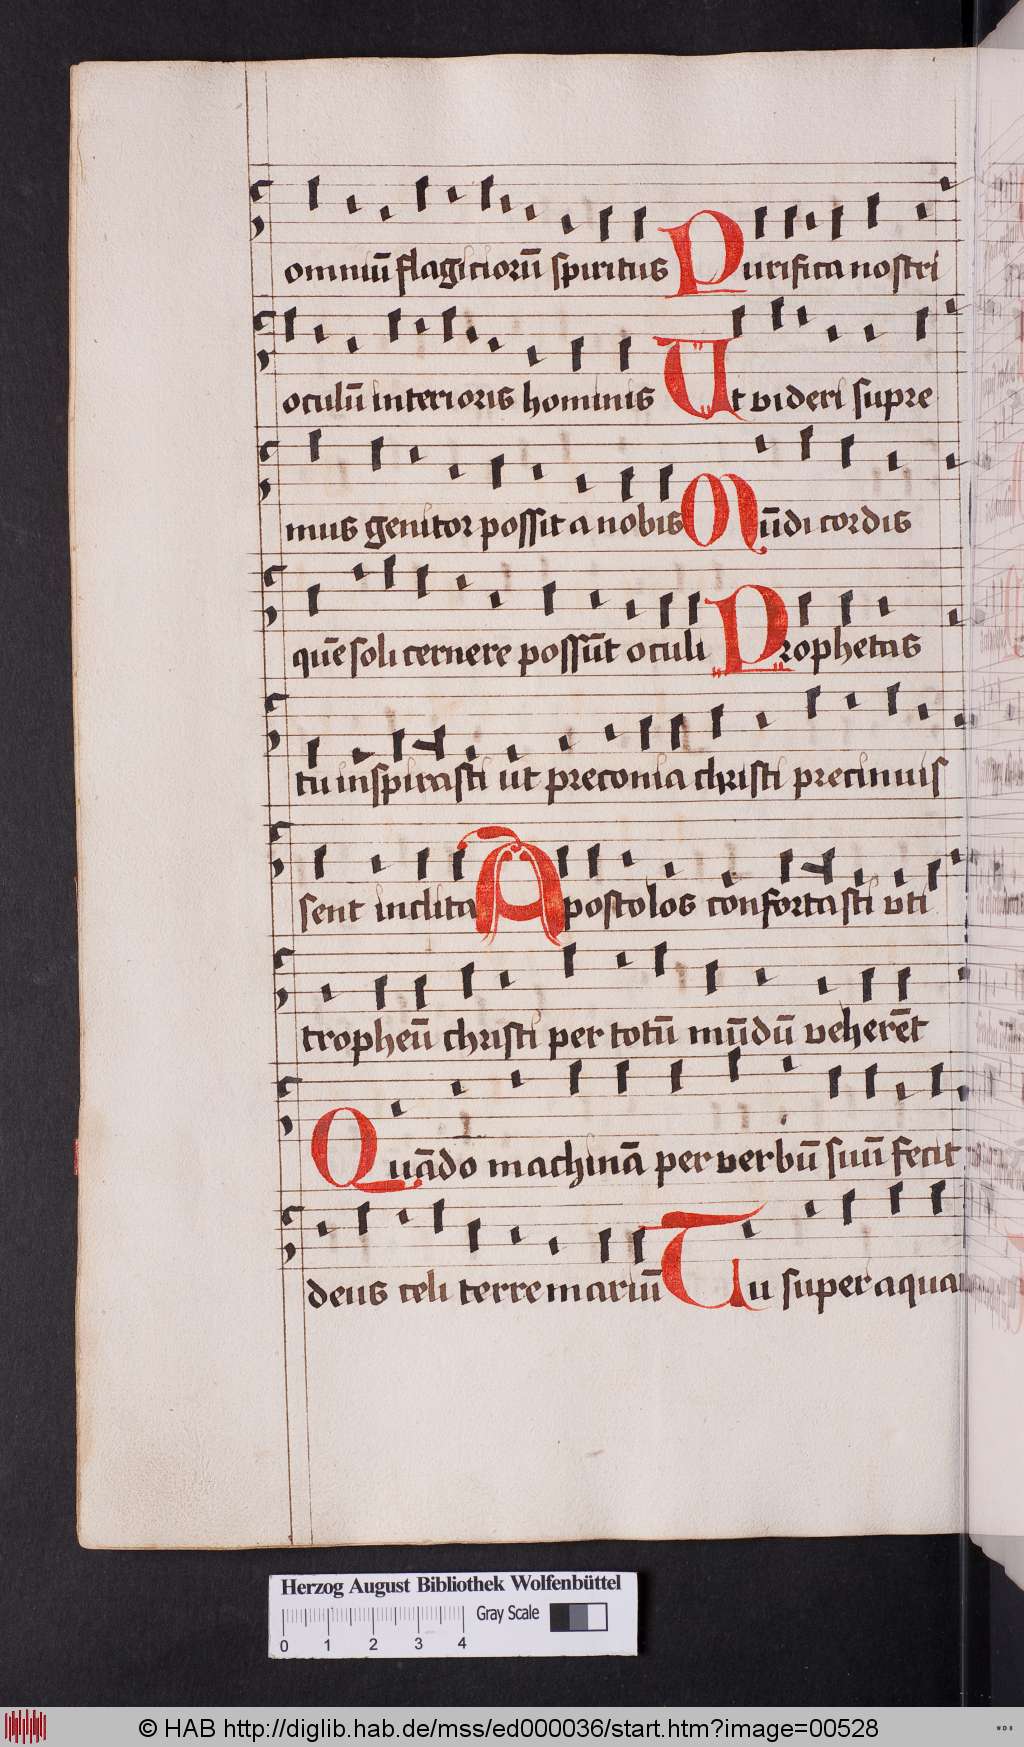 omniū flagiciorū spiritus Purifica nostri
oculū interioris hominis Ut videri supre
mus genitor possit a nobis Mūdi cordis
quē soli cernere possūt oculi Prophetas
tu inspirasti ut preconia christi precinuis
sent inclita Apostolos confortasti vti
tropheū christi per totū mūdū veherēt
Quādo machinā per verbū suū fecit
deus celi terre mariū Tu super aqua
Herzog August Bibliothek Wolfenbüttel
Gray Scale
0 1 2 3 4
© HAB http://diglib.hab.de/mss/ed000036/start.htm?image=00528